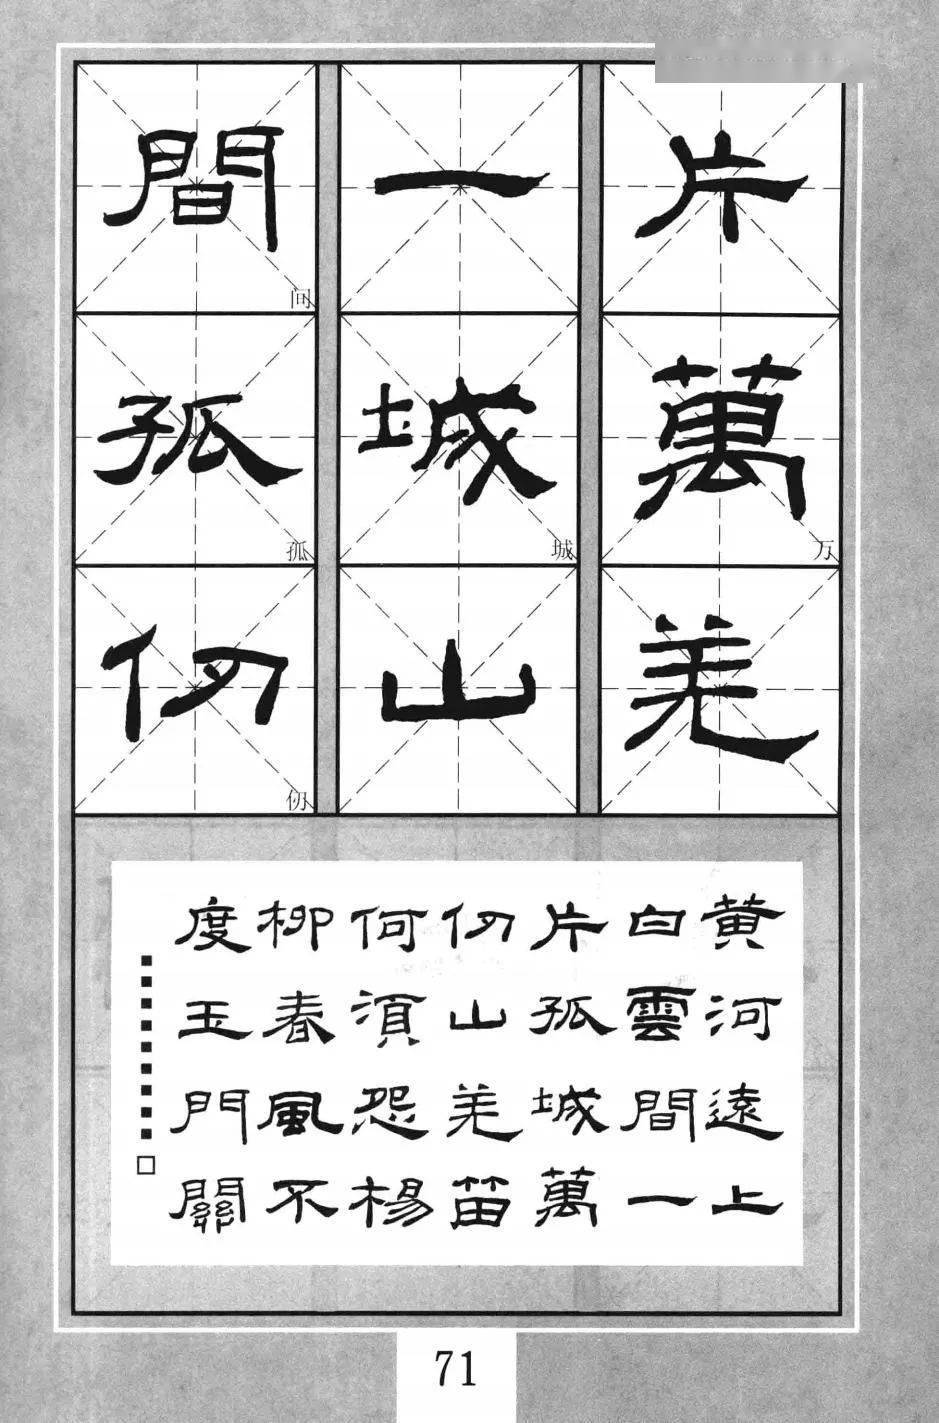 間一片
间
孤城萬
孤 城 万
仞山羌
仞
黄河遠上
白雲間一
片孤城萬
仞山羌笛
何湏怨楊
柳春風不
度玉門關
71